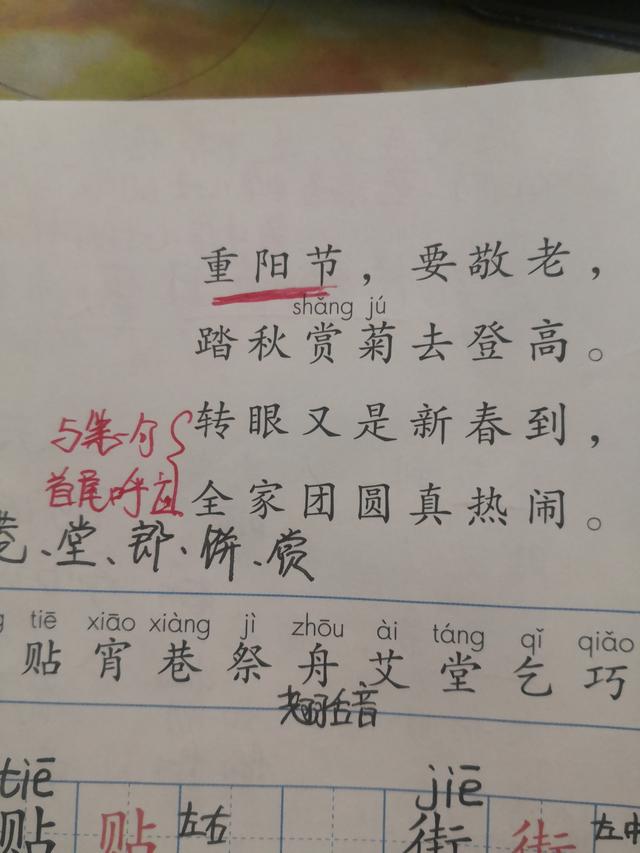 重阳节，要敬老，
shǎng jú
踏秋赏菊去登高。
转眼又是新春到，
与第一句
首尾呼应
全家团圆真热闹。
巷、堂、郎、饼、赏
tiē xiāo xiàng jì zhōu ài táng qǐ qiǎo
贴宵巷祭舟艾堂乞巧
翘舌音
tiē jiē
贴 贴 左右 街 街 左中